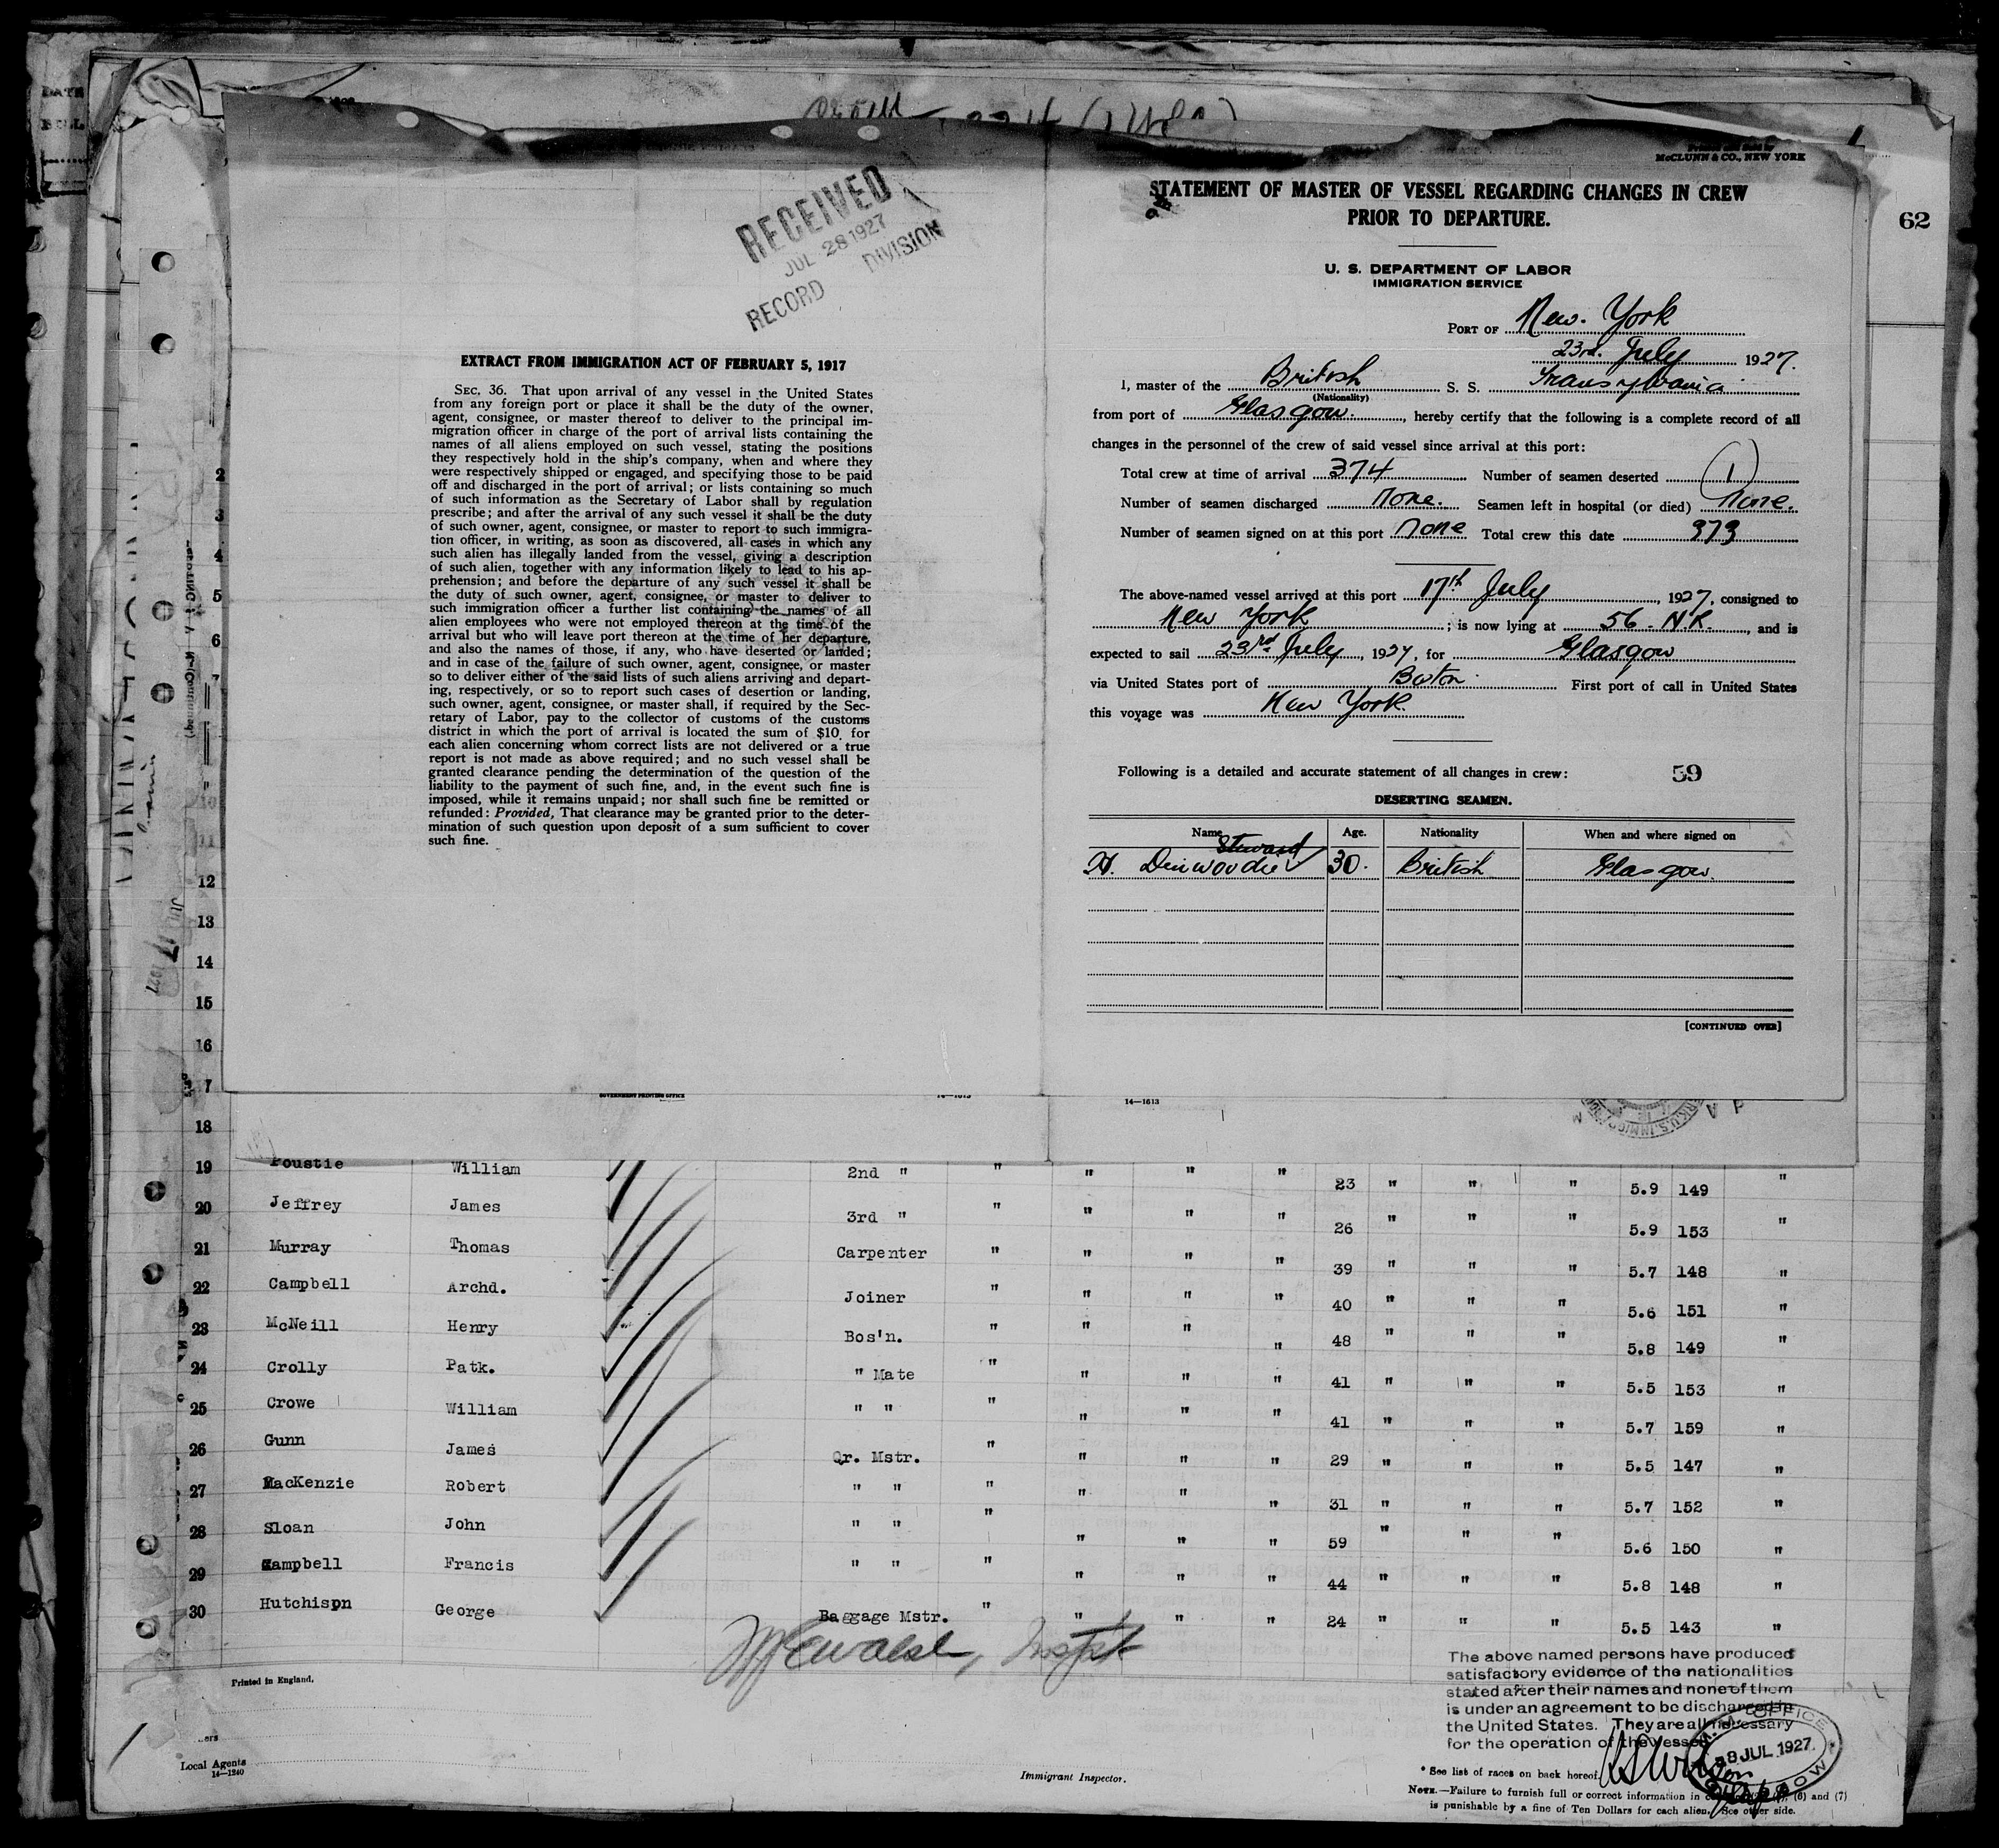 DATE
McCLUNN & CO., NEW YORK
62
RECEIVED
JUL 28 1927
RECORD DIVISION
EXTRACT FROM IMMIGRATION ACT OF FEBRUARY 5, 1917
SEC. 36. That upon arrival of any vessel in the United States
from any foreign port or place it shall be the duty of the owner,
agent, consignee, or master thereof to deliver to the principal im-
migration officer in charge of the port of arrival lists containing the
names of all aliens employed on such vessel, stating the positions
they respectively hold in the ship's company, when and where they
were respectively shipped or engaged, and specifying those to be paid
off and discharged in the port of arrival; or lists containing so much
of such information as the Secretary of Labor shall by regulation
prescribe; and after the arrival of any such vessel it shall be the duty
of such owner, agent, consignee, or master to report to such immigra-
tion officer, in writing, as soon as discovered, all cases in which any
such alien has illegally landed from the vessel, giving a description
of such alien, together with any information likely to lead to his ap-
prehension; and before the departure of any such vessel it shall be
the duty of such owner, agent, consignee, or master to deliver to
such immigration officer a further list containing the names of all
alien employees who were not employed thereon at the time of the
arrival but who will leave port thereon at the time of her departure,
and also the names of those, if any, who have deserted or landed;
and in case of the failure of such owner, agent, consignee, or master
so to deliver either of the said lists of such aliens arriving and depart-
ing, respectively, or so to report such cases of desertion or landing,
such owner, agent, consignee, or master shall, if required by the Sec-
retary of Labor, pay to the collector of customs of the customs
district in which the port of arrival is located the sum of $10 for
each alien concerning whom correct lists are not delivered or a true
report is not made as above required; and no such vessel shall be
granted clearance pending the determination of the question of the
liability to the payment of such fine, and, in the event such fine is
imposed, while it remains unpaid; nor shall such fine be remitted or
refunded: Provided, That clearance may be granted prior to the deter-
mination of such question upon deposit of a sum sufficient to cover
such fine.
STATEMENT OF MASTER OF VESSEL REGARDING CHANGES IN CREW
PRIOR TO DEPARTURE.
U. S. DEPARTMENT OF LABOR
IMMIGRATION SERVICE
PORT OF New York
23rd July 1927.
I, master of the British S. S. Transylvania
(Nationality)
from port of Glasgow., hereby certify that the following is a complete record of all
changes in the personnel of the crew of said vessel since arrival at this port:
Total crew at time of arrival 374 Number of seamen deserted 1
Number of seamen discharged None. Seamen left in hospital (or died) None.
Number of seamen signed on at this port None Total crew this date 373
The above-named vessel arrived at this port 17th July, 1927, consigned to
New York; is now lying at 56 N.R., and is
expected to sail 23rd July, 1927, for Glasgow
via United States port of Boston. First port of call in United States
this voyage was New York.
Following is a detailed and accurate statement of all changes in crew: 59
DESERTING SEAMEN.
Name Age. Nationality When and where signed on
Steward
H. Dinwoodie 30. British Glasgow.
[CONTINUED OVER]
2
3
4
5
6
7
10
11
12
13
14
15
16
7
18
JUL 17 1927
GOVERNMENT PRINTING OFFICE
14—1613
14—1613
19 Poustie William 2nd " " " " " 23 " " " 5.9 149 "
20 Jeffrey James 3rd " " " " " 26 " " " 5.9 153 "
21 Murray Thomas Carpenter " " " " 39 " " " 5.7 148 "
22 Campbell Archd. Joiner " " " " 40 " " " 5.6 151 "
23 McNeill Henry Bos'n. " " " " 48 " " " 5.8 149 "
24 Crolly Patk. " Mate " " " " 41 " " " 5.5 153 "
25 Crowe William " " " " " " 41 " " " 5.7 159 "
26 Gunn James Qr. Mstr. " " " " 29 " " " 5.5 147 "
27 MacKenzie Robert " " " " " " 31 " " " 5.7 152 "
28 Sloan John " " " " " " 59 " " " 5.6 150 "
29 Campbell Francis " " " " " " 44 " " " 5.8 148 "
30 Hutchison George Baggage Mstr. " " " " 24 " " " 5.5 143 "
Printed in England.
The above named persons have produced
satisfactory evidence of the nationalities
stated after their names and none of them
is under an agreement to be discharged in
the United States. They are all necessary
for the operation of the vessel
M.M. OFFICE
8 JUL 1927
GLASGOW
Local Agents
14—1240
Immigrant Inspector.
* See list of races on back hereof.
NOTE.—Failure to furnish full or correct information in (6) and (7)
is punishable by a fine of Ten Dollars for each alien. See other side.